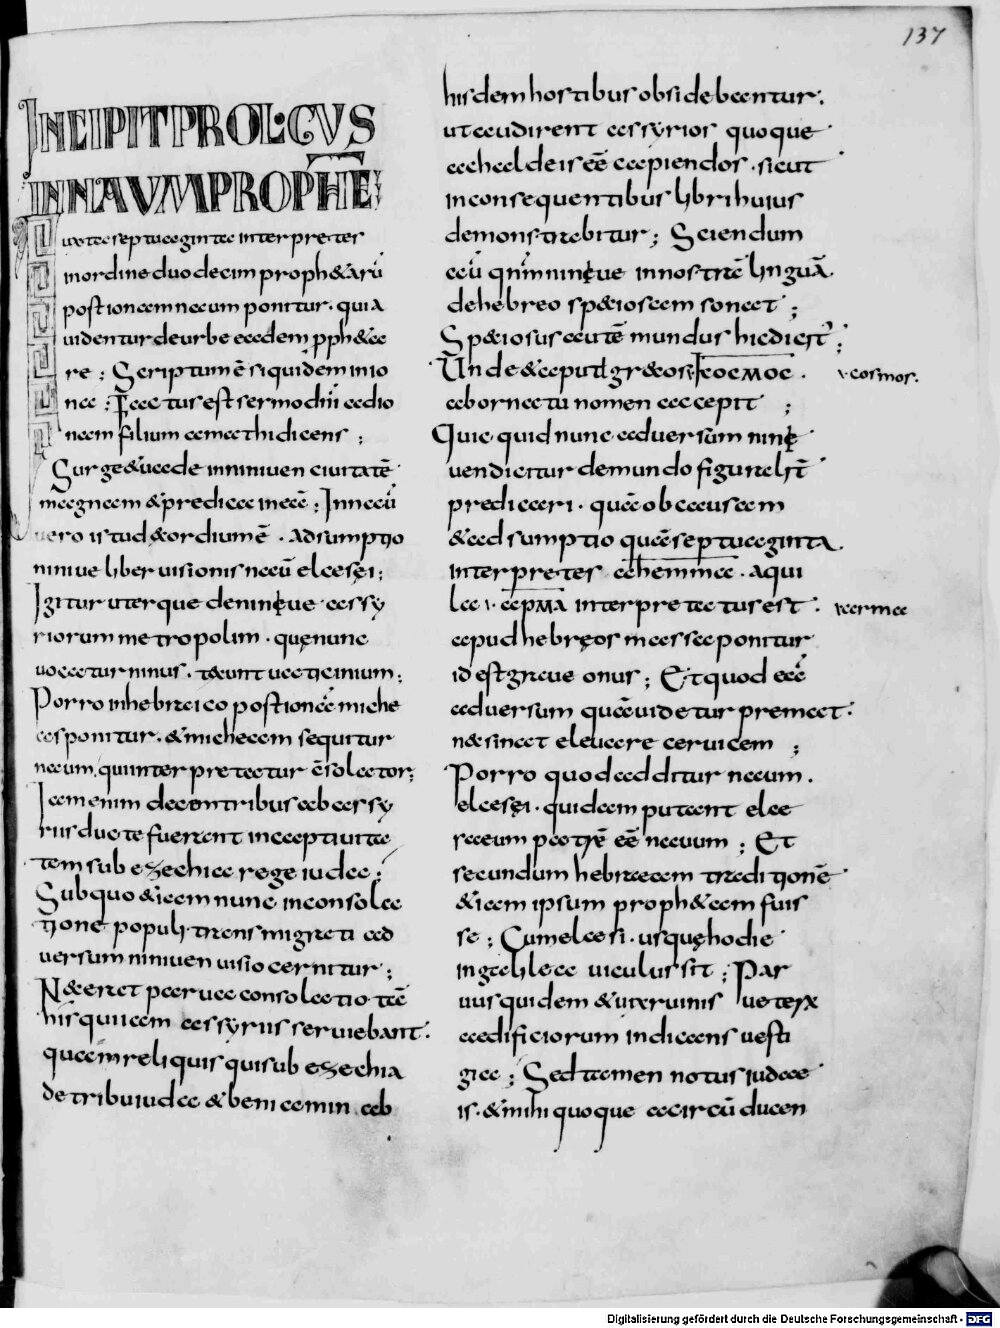 137
INCIPIT PROLOGVS
IN NAVM PROPHĒ
Iuxta septuaginta interpretes
in ordine duodecim proph&arū
post ionam naum ponitur. quia
uidentur de urbe eadem pph&a
re; Scriptum ē siquidem in io
na; Factus est sermo dn̄i ad io
nam filium amathi dicens;
Surge & uade in niniuen ciuitatē
magnam & predica in ea; In naū
uero istud & ordium ē. Adsumptio
niniue liber uisionis naū elcesęi;
Igitur uterque de niniue assy
riorum metropolim. quę nunc
uocatur ninus. & aunt uaticinium;
Porro in hebraico post ionā miche
as ponitur. & micheam sequitur
naum. qui interpretatur ēsolator;
Iam enim decem tribus ab assy
riis ductae fuerant in captiuita
tem sub ezechia rege iudae;
Sub quo & iam nunc in consola
tione populi transmigrati ad
uersum niniuen uisio cernitur;
Nec erat parua consolatio tā
his qui iam assyriis seruiebant.
quam reliquis qui sub ezechia
de tribu iuda & beniamin ab
hisdem hostibus obsidebantur;
ut audirent assyrios quoque
a chaldeis eē capiendos. sicut
in consequentibus libri huius
demonstrabitur; Sciendum
aū qm̄ niniue in nostra linguā.
de hebreo sp&iosam sonat;
Sp&iosus autē mundus hic dicit;
Unde & aput gr&os κοϲμοϲ.
v cosmos.
ab ornatu nomen accepit;
Quicquid nunc aduersum ninę
uen dicitur de mundo figuralit̄
predicari. quā ob causam
& adsumptio quā septuaginta
interpretes ahemma. aqui
la v. apma interpretatus est.
v arma
apud hebręos massa ponitur
id est graue onus; Et quod eā
aduersum quā uidetur premat.
n& sinat eleuare ceruicem;
Porro quod additur naum.
elcesęi. quidam putant elce
saeum patrē eē nauum; Et
secundum hebraeam traditionē
& iam ipsum proph&am fuis
se; Cum elcesi. usquę hodie
in galilea uiculus sit; Par
uus quidem & uix ruinis ueterū
aedificiorum indicans uesti
gia; Sed tamen notus iudae
is. & mihi quoque a circū ducen
Digitalisierung gefördert durch die Deutsche Forschungsgemeinschaft - DFG